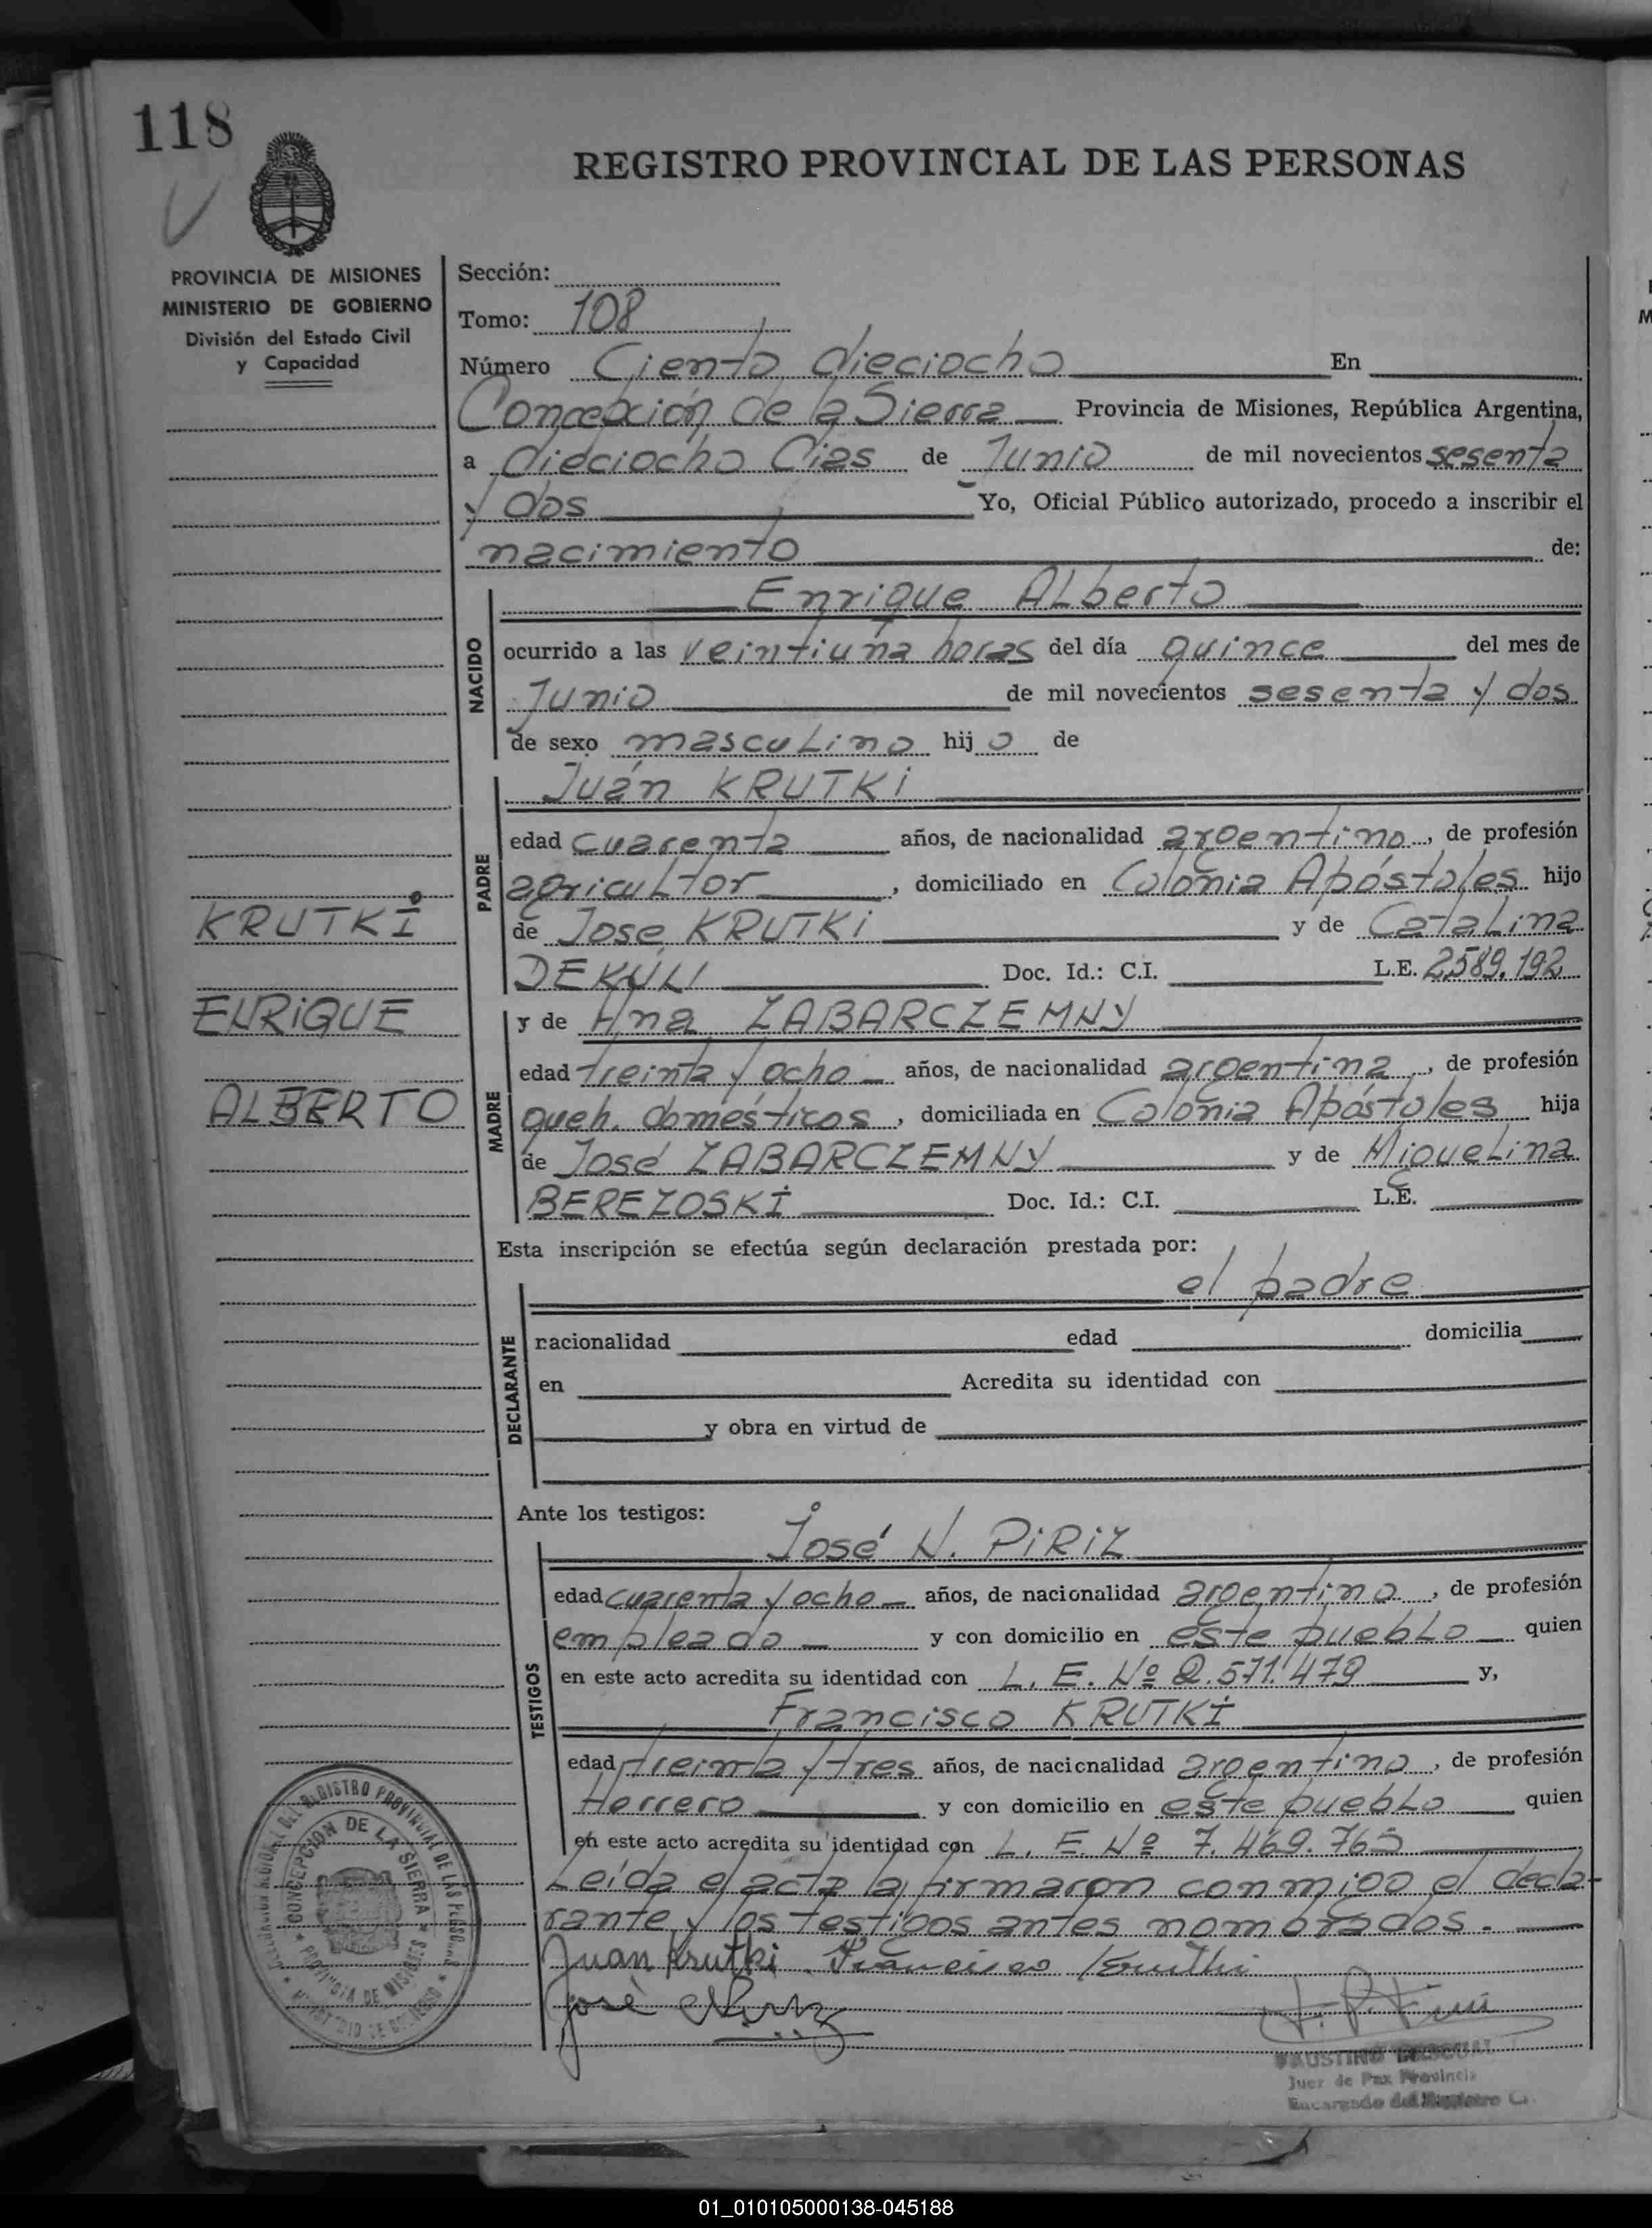 118
REGISTRO PROVINCIAL DE LAS PERSONAS
PROVINCIA DE MISIONES
MINISTERIO DE GOBIERNO
División del Estado Civil
y Capacidad
Sección:
Tomo: 108
Número Ciento dieciocho En
Concepción de la Sierra Provincia de Misiones, República Argentina,
a dieciocho Días de Junio de mil novecientos sesenta
y dos Yo, Oficial Público autorizado, procedo a inscribir el
nacimiento de:
NACIDO
Enrique ALberto
ocurrido a las veintiuna horas del día quince del mes de
Junio de mil novecientos sesenta y dos
de sexo mascuLino hij o de
PADRE
Juán KRUTKi
edad cuarenta años, de nacionalidad argentino, de profesión
agricuLtor, domiciliado en Colonia Apóstoles hijo
de José KRUTKi y de CataLina
DEKULI Doc. Id.: C.I. L.E. 2.589.192
KRUTKi
ENRiQUE
ALBERTO
MADRE
y de Ana ZABARCZEMNY
edad treinta y ocho años, de nacionalidad argentina, de profesión
queh. domésticos, domiciliada en Colonia Apóstoles hija
de José ZABARCZEMNY y de MigueLina
BEREZOSKi Doc. Id.: C.I. L.E.
Esta inscripción se efectúa según declaración prestada por:
DECLARANTE
el padre
nacionalidad edad domicilia
en Acredita su identidad con
y obra en virtud de
Ante los testigos:
TESTIGOS
José N. PiRiZ
edad cuarenta y ocho años, de nacionalidad argentino, de profesión
empleado y con domicilio en este puebLo quien
en este acto acredita su identidad con L. E. Nº 2.571.479 y,
Francisco KRUTKi
edad treinta y tres años, de nacionalidad argentino, de profesión
Herrero y con domicilio en este puebLo quien
en este acto acredita su identidad con L. E. Nº 7.469.765
Leída el acta la firmaron conmigo el decla-
rante y los testigos antes nombrados.
Juan Krutki Francisco Krutki
José N. Piriz
CONCEPCION DE LA SIERRA
PROVINCIA DE MISIONES
REGISTRO PROVINCIAL DE LAS PERSONAS
FAUSTINO
Juez de Paz Provincia
Encargado del Registro C.
01_010105000138-045188